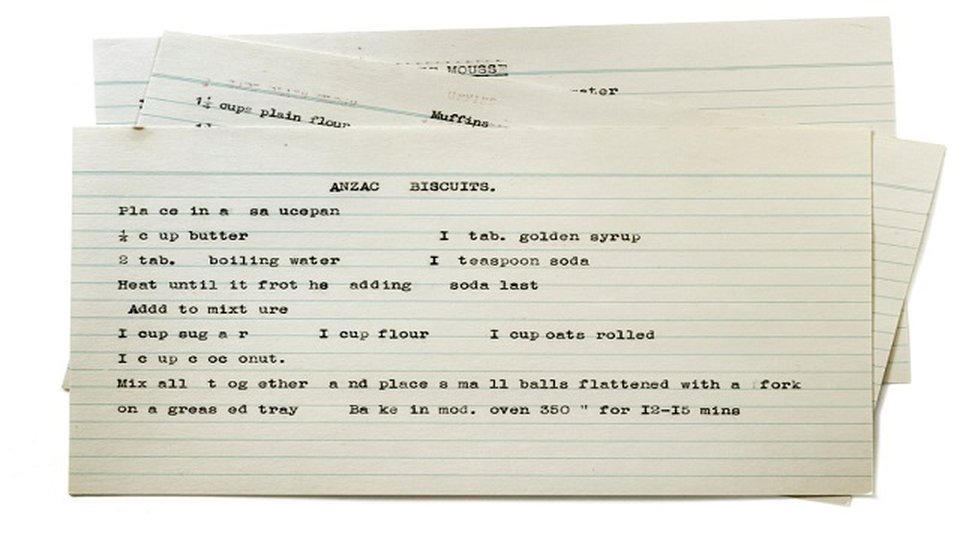 MOUSSE
1¼ cups plain flour Muffins
ANZAC BISCUITS.
Pla ce in a sa ucepan
½ c up butter I tab. golden syrup
2 tab. boiling water I teaspoon soda
Heat until it frot hs adding soda last
Addd to mixt ure
I cup sug a r I cup flour I cup oats rolled
I c up c oc onut.
Mix all t og ether a nd place s ma ll balls flattened with a fork
on a greas ed tray Ba ke in mod. oven 350 " for I2-I5 mins